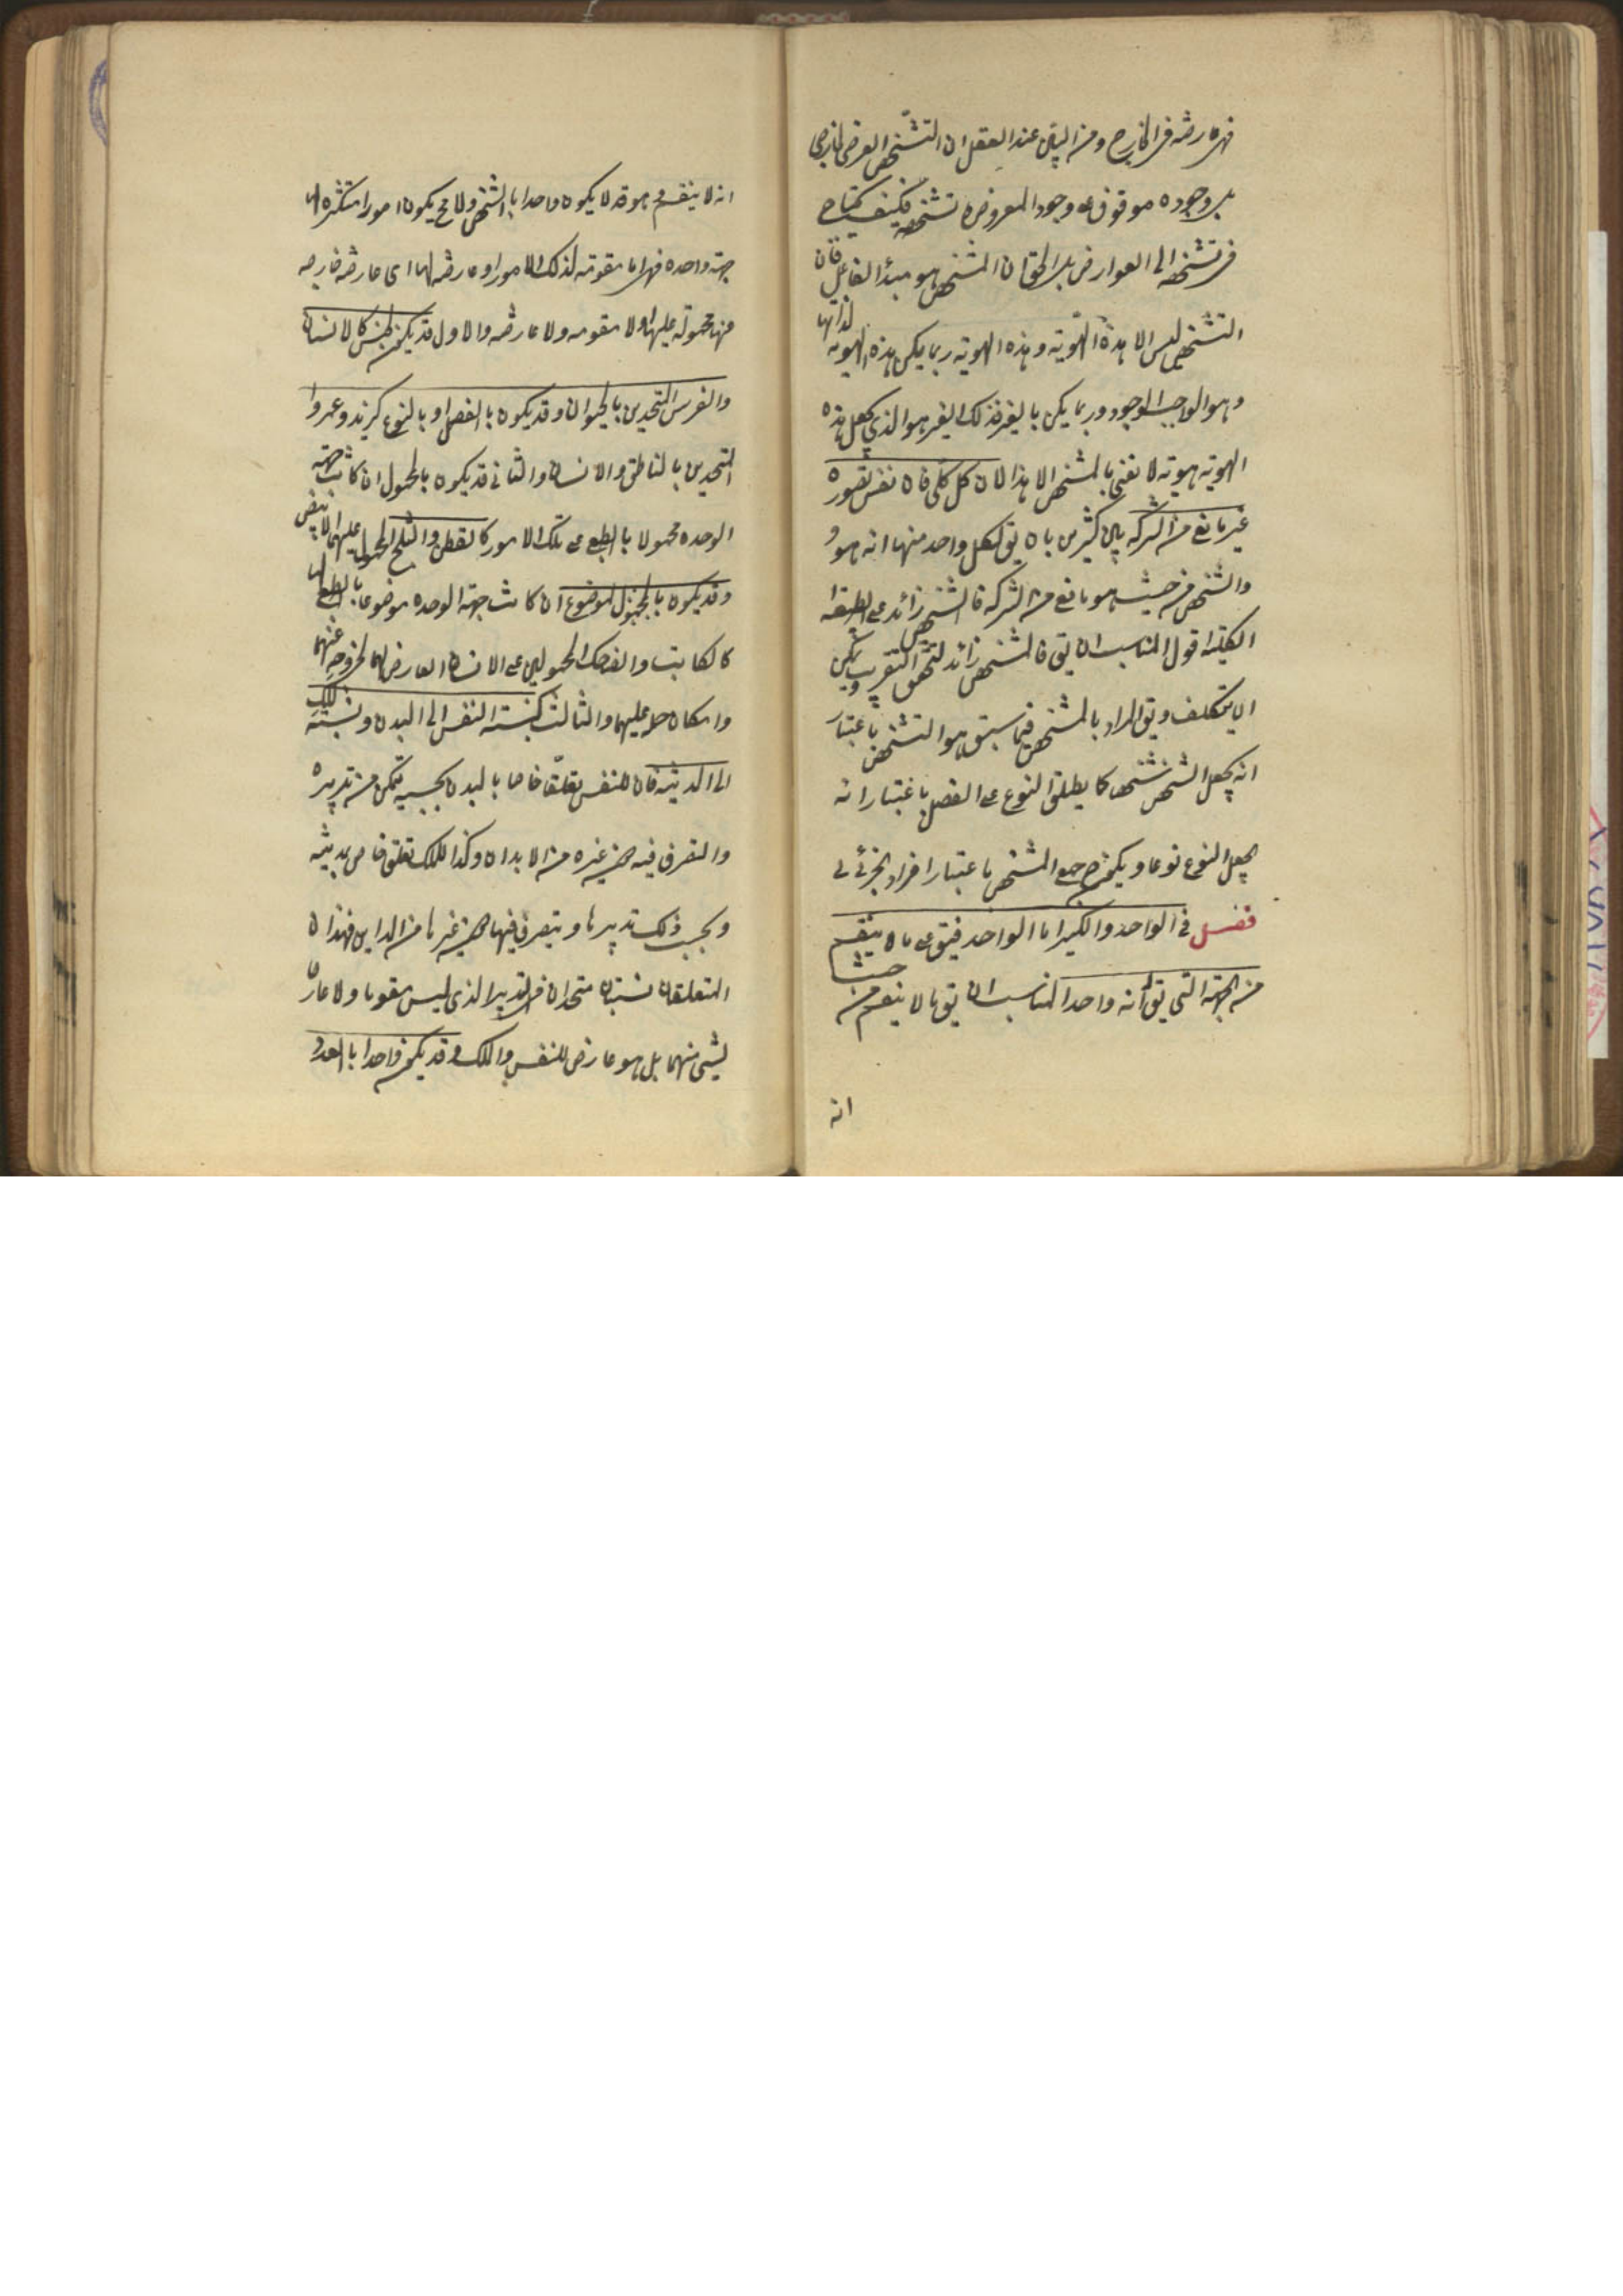 فهى عارضه فى الخارج ومن البين عند العقل ان التشخص العرضى الخارجى
بل وجوده موقوف على وجود المعروض و تشخصه فكيف يحتاج
فى تشخصه الى العوارض بل الحق ان المشخص هو مبدأ الفاعل فان
التشخص ليس الا هذه الهويّة وهذه الهويه ربما يكون هذه الهويه لذاتها
وهو الواجب الوجود وربما يكون بالغير فذلك الغير هو الذى يجعل هذه
الهويه هويه لا نعنى بالمشخص الا هذا لان كل كلى فان نفس تصوره
غير مانع من الشركه بين كثيرين بان يق لكل واحد منها انه هو و
والشخص من حيث هو مانع من الشركه فالتشخص زائد على الطبيعة
الكلية اقول المناسب ان يق فالمشخص زائد ليتحقق التقريب ويمكن
ان يتكلف ويق المراد بالمشخص فيما سبق هو التشخص باعتبار
انه يجعل الشخص شخصا كما يطلق النوع على الفصل باعتبار انه
يجعل النوع نوعا ويكون ح جمع المشخص باعتبار افراد الجزئى
فصل فى الواحد والكثير اما الواحد فيق على ما لا ينقسم
من الجهة التى يق انه واحد المناسب ان يق ما لا ينقسم من حيث
انه
انه لا ينقسم وهو قد لا يكون واحدا بالشخص ولا مح يكون امورا متكثره لها
جهة واحده فهى اما مقومة لذلك الامور او عارضه لها اى عارضه خارجه
عنها محمولة عليها او لا مقومه ولا عارضه والاول قد يكون بالجنس كالانسان
والفرس المتحدين بالحيوان وقد يكون بالفصل او بالنوع كزيد وعمرو
المتحدين بالناطق والانسان والثانى قد يكون بالمحمول ان كانت جهة
الوحده محمولا بالطبع على تلك الامور كالقطن والثلج المحمول عليهما الابيض
وقد يكون بالموضوع ان كانت جهة الوحده موضوعا بالطبع لها
كالكاتب والضاحك المحمولين على الانسان العارض لهما لخروجه عنهما
وامكان حمله عليهما والثالث كنسبة النفس الى البدن ونسبة الملك
الى المدينه فان للنفس تعلّقا خاصا بالبدن بحسبه يتمكن من تدبيره
والتصرف فيه دون غيره من الابدان وكذا للملك تعلق خاص بمدينه
وبحسب ذلك تدبيرها ويتصرف فيها دون غيرها من المداين فهذان
المتعلقان نسبتان متحدان فى التدبير الذى ليس مقوما ولا عارضا
لشىء منهما بل هو عارض للنفس والملك وقد يكون واحدا بالعدد